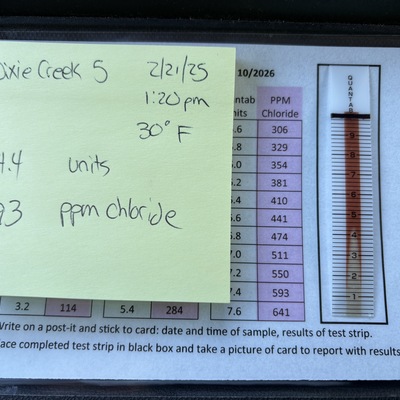 ixie Creek 5 2/21/25
1:20 pm
30° F
4.4 units
93 ppm chloride
10/2026
ntab PPM
nits Chloride
.6 306
.8 329
.0 354
.2 381
.4 410
.6 441
.8 474
7.0 511
7.2 550
7.4 593
3.2 114 5.4 284 7.6 641
Write on a post-it and stick to card: date and time of sample, results of test strip.
lace completed test strip in black box and take a picture of card to report with results
QUANTAB
9
8
7
6
5
4
3
2
1